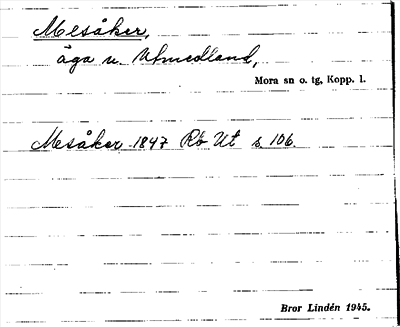 Mesåker,
äga u. Utmedland,
Mora sn o. tg, Kopp. l.
Mesåker 1847 Rö Ut s. 106.
Bror Lindén 1945.